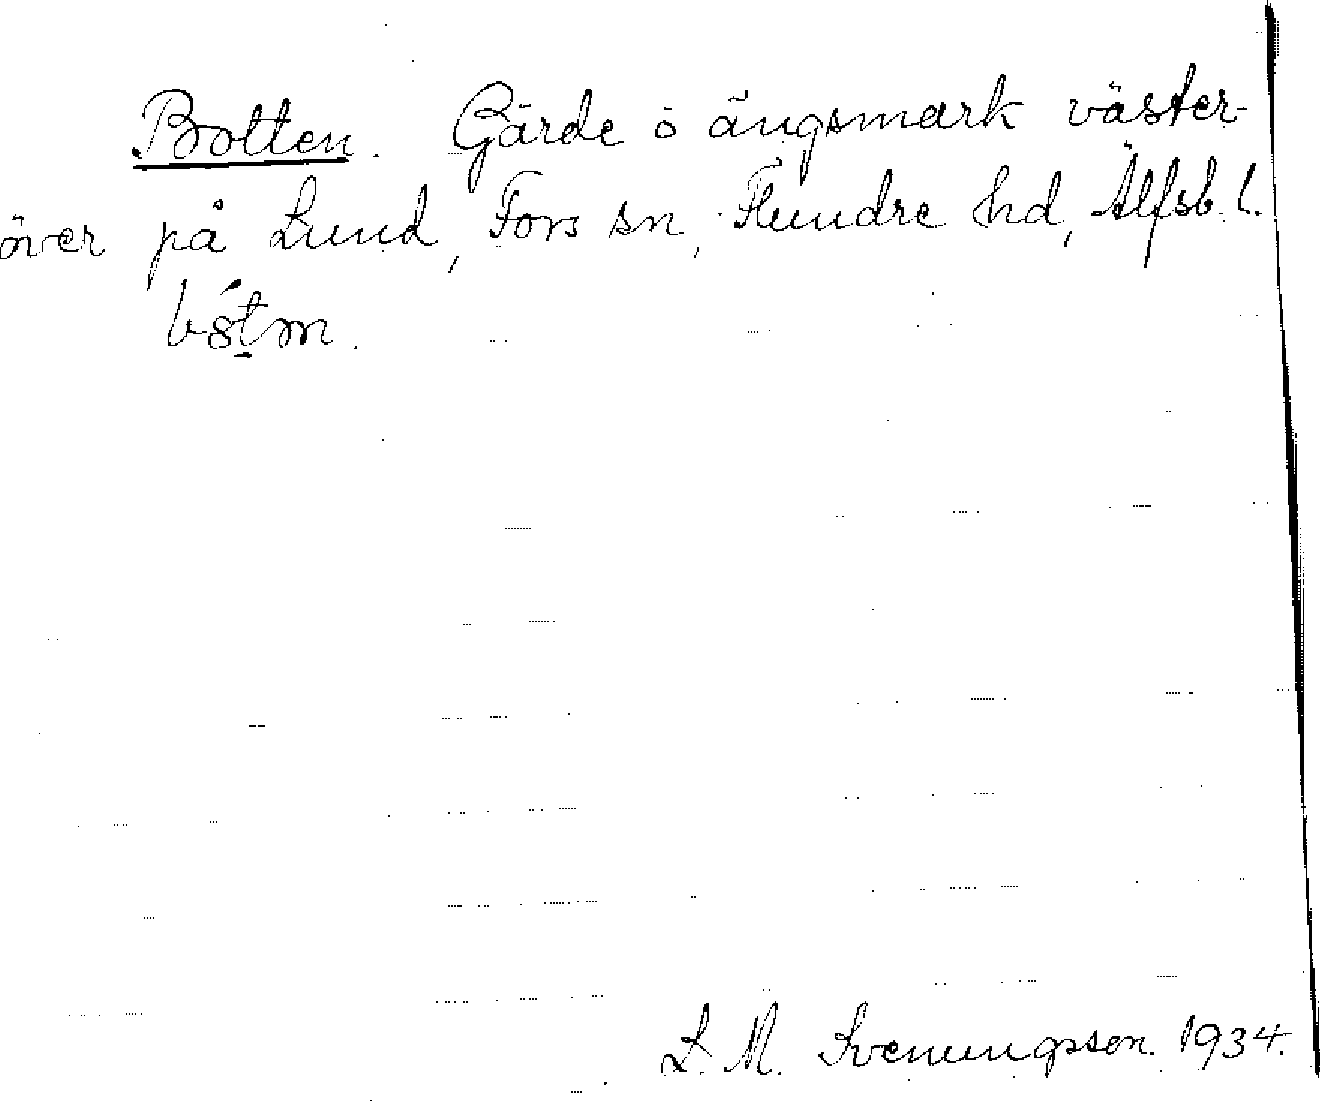 Botten. Gärde o ängsmark väster-
över på Lund, Fors sn, Flundre hd, Älfsb. l.
L. M. Svenungsson. 1934.